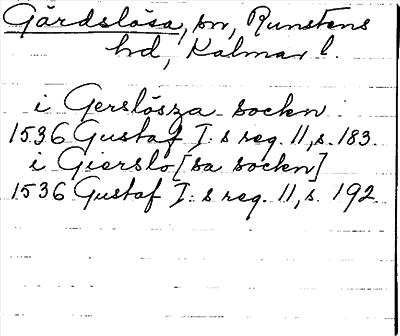 Gärdslösa, sn, Runstens
hd, Kalmar l.
i Gerslösza sockn
1536 Gustaf I: s reg. 11, s. 183.
i Gierslo[sa sockn]
1536 Gustaf I: s reg. 11, s. 192